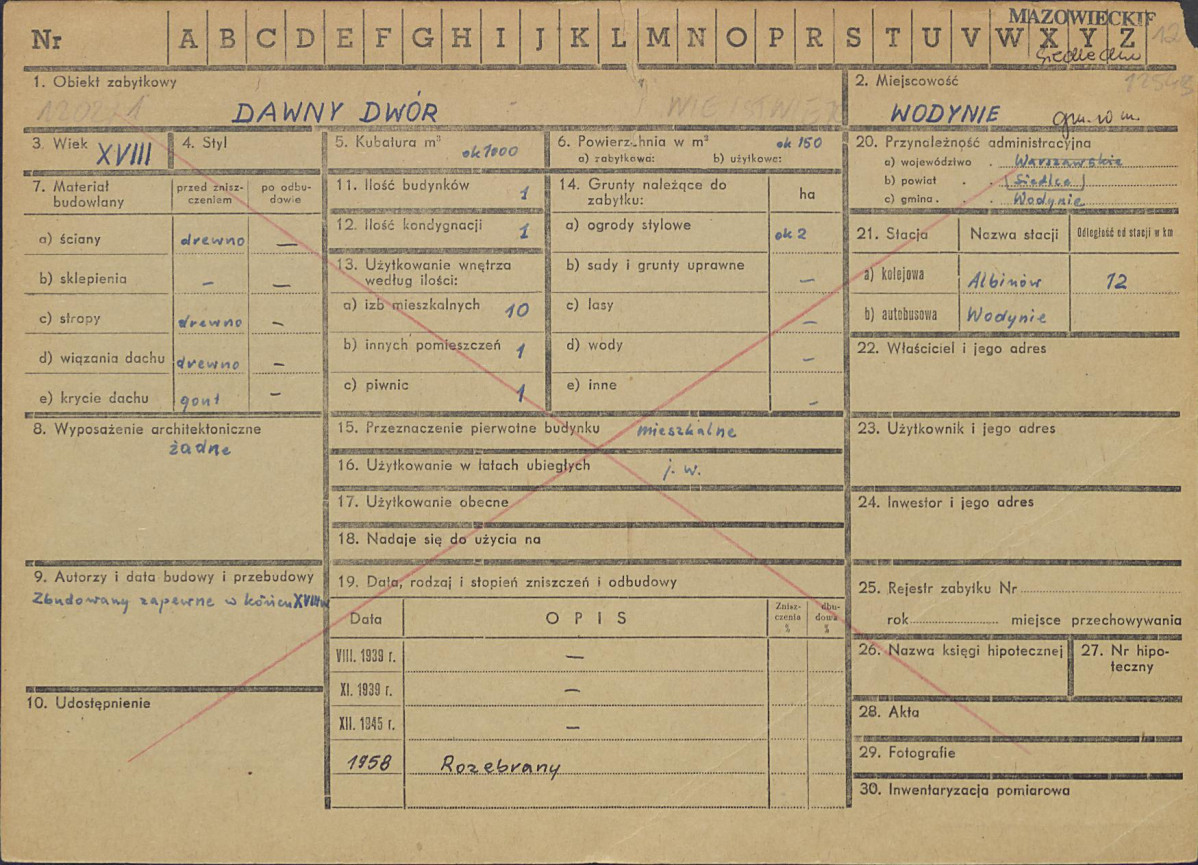 MAZOWIECKIE
Nr A B C D E F G H I J K L M N O P R S T U V W X Y Z 12
siedleckie
1. Obiekt zabytkowy
DAWNY DWÓR
NIE ISTNIEJE
2. Miejscowość
WODYNIE gm. w m.
3. Wiek XVIII
4. Styl
5. Kubatura m³ ok 1000
6. Powierzchnia w m² ok 150
a) zabytkowa: b) użytkowa:
7. Materiał budowlany
przed znisz-
czeniem
po odbu-
dowie
a) ściany drewno —
b) sklepienia — —
c) stropy drewno —
d) wiązania dachu drewno —
e) krycie dachu gont —
8. Wyposażenie architektoniczne
żadne
9. Autorzy i data budowy i przebudowy
Zbudowany zapewne w końcu XVIII w
10. Udostępnienie
11. Ilość budynków 1
12. Ilość kondygnacji 1
13. Użytkowanie wnętrza
według ilości:
a) izb mieszkalnych 10
b) innych pomieszczeń 1
c) piwnic 1
14. Grunty należące do
zabytku: ha
a) ogrody stylowe ok 2
b) sady i grunty uprawne —
c) lasy —
d) wody —
e) inne —
15. Przeznaczenie pierwotne budynku mieszkalne
16. Użytkowanie w latach ubiegłych j. w.
17. Użytkowanie obecne
18. Nadaje się do użycia na
19. Data, rodzaj i stopień zniszczeń i odbudowy
Data OPIS
Znisz-
czenia
%
dbu-
dowa
%
VIII. 1939 r. —
XI. 1939 r. —
XII. 1945 r. —
1958 Rozebrany
20. Przynależność administracyjna
a) województwo . Warszawskie
b) powiat . . Siedlce
c) gmina . . . Wodynie
21. Stacja Nazwa stacji Odległość od stacji w km
a) kolejowa Albinów 12
b) autobusowa Wodynie
22. Właściciel i jego adres
23. Użytkownik i jego adres
24. Inwestor i jego adres
25. Rejestr zabytku Nr
rok miejsce przechowywania
26. Nazwa księgi hipotecznej
27. Nr hipo-
teczny
28. Akta
29. Fotografie
30. Inwentaryzacja pomiarowa